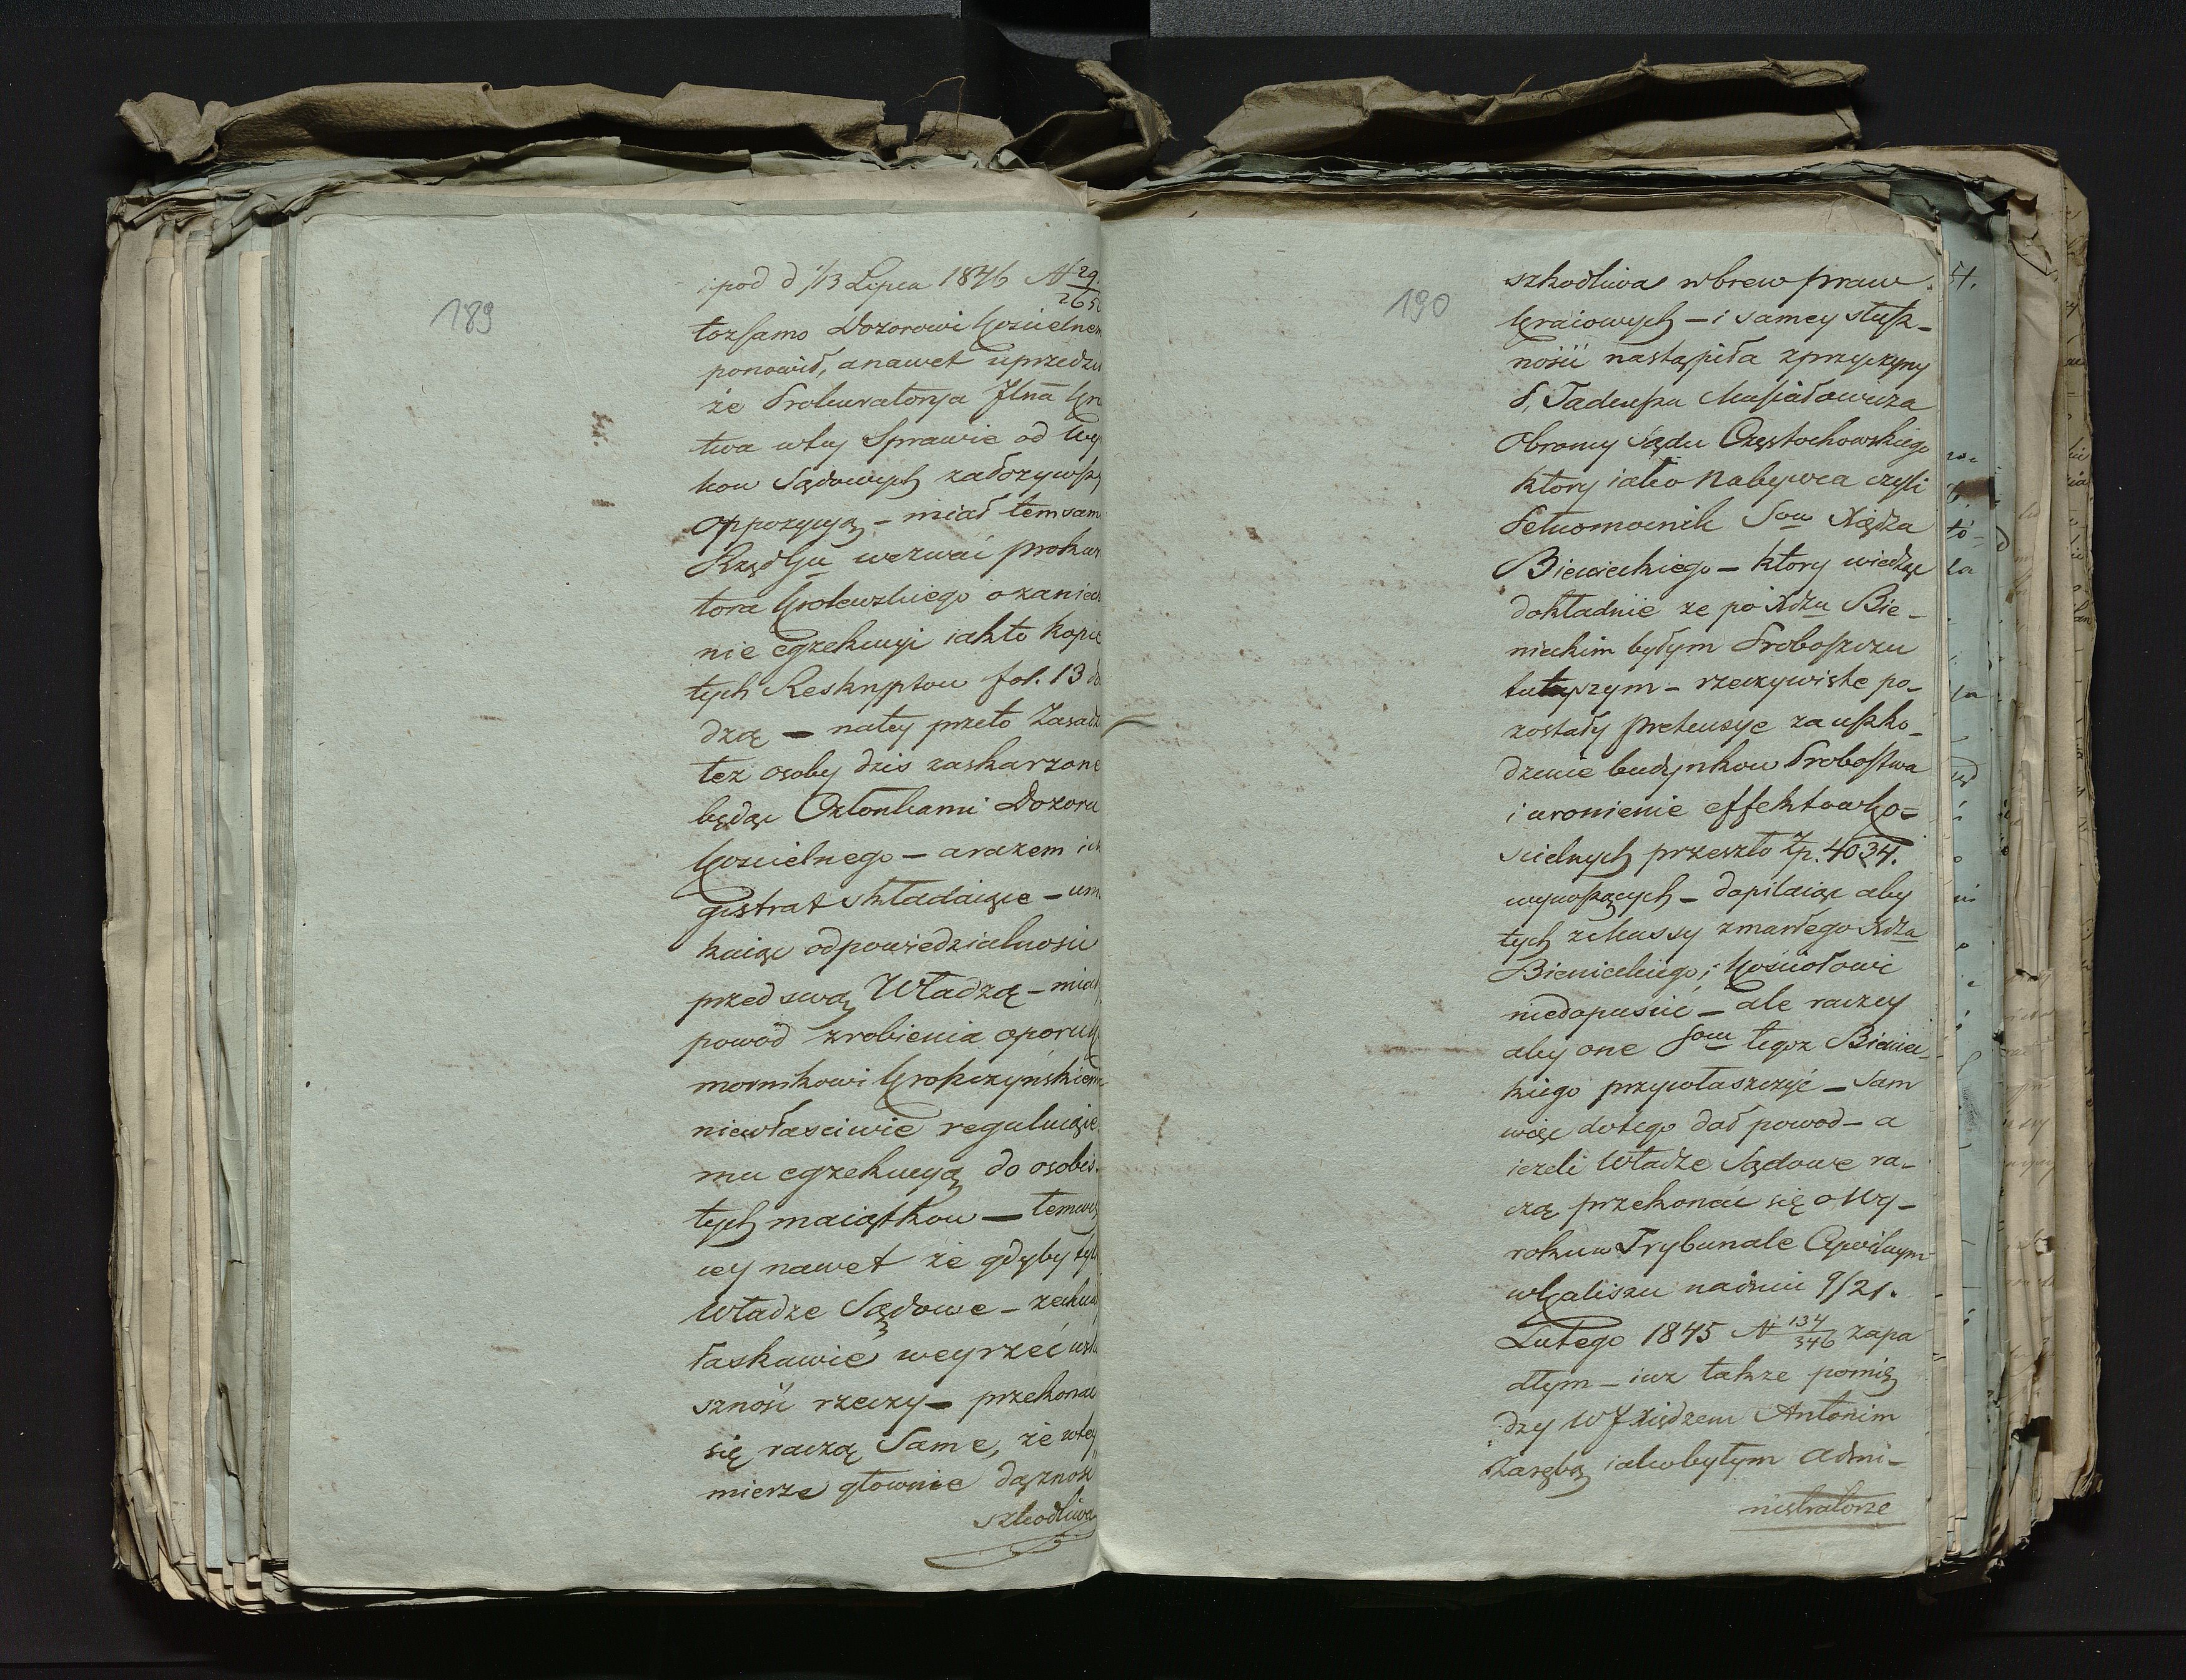 189
i pod d 1/13 Lipca 1846 N 29/265
tożsamo Dozorowi Kościelnem
ponowił, a nawet uprzedził
że Prokuratorya Jlna Kró
twa w tey Sprawie od Wyro
kow Sądowych założywszy
oppozycyą – miał temsam
Rząd Gu wezwać prokura
tora Królewskiego o zaniech
nie egzekucyi iak to kopie
tych Reskryptow fol. 13 do
dzą – na tey przeto Zasadz
też osoby dziś zaskarzone
będąc Członkami Dozoru
Kościelnego – a razem i
gistrat składaiące – un
kaiąc odpowiedzialności
przed swą Władzą – miał
powód zrobienia oporu K
mornikowi Kropczyńskiem
niewłaściwie reguluiące
mu egzekucyą do osobis
tych maiątkow – tem wię
cey nawet że gdyby tyl
Władze Sądowe – zechci
łaskawie weyrzeć w
szność rzeczy – przekonać
się raczą Same, że w tey
mierze głownie dążność
szkodliwa
190
szkodliwa wbrew praw
kraiowych – i samey słusz-
ności nastąpiła z przyczyny
P. Tadeusza Musiałowicza
Obroncy Sądu Częstochowskiego
ktory iako Nabywca czyli
Pełnomocnik Sow Xiędza
Bienieckiego – ktory wiedząc
dokładnie że po Xdzu Bie-
nieckim byłym Proboszczu
tuteyszym – rzeczywiste po-
zostały pretensye za uszko-
dzenie budynkow Probostwa
i uronienie effektow Ko-
ścielnych przeszło Zp. 4034.
wynoszących – dopilaiąc aby
tych z Massy zmarłego Xdza
Bienieckiego, Kościołowi
niedopuścić – ale raczey
aby one Som tegoz Bieniec-
kiego przywłaszczyć – Sam
więc do tego dał powod – a
ieżeli Władze Sądowe ra-
czą przekonać się o Wy-
roku w Trybunale Cywilnym
w Kaliszu na dniu 9/21.
Lutego 1845 N 134/346 zapa
dłym – iuz także pomię
dzy WJ Xiędzem Antonim
Zarębą iako byłym Admi-
nistratorze